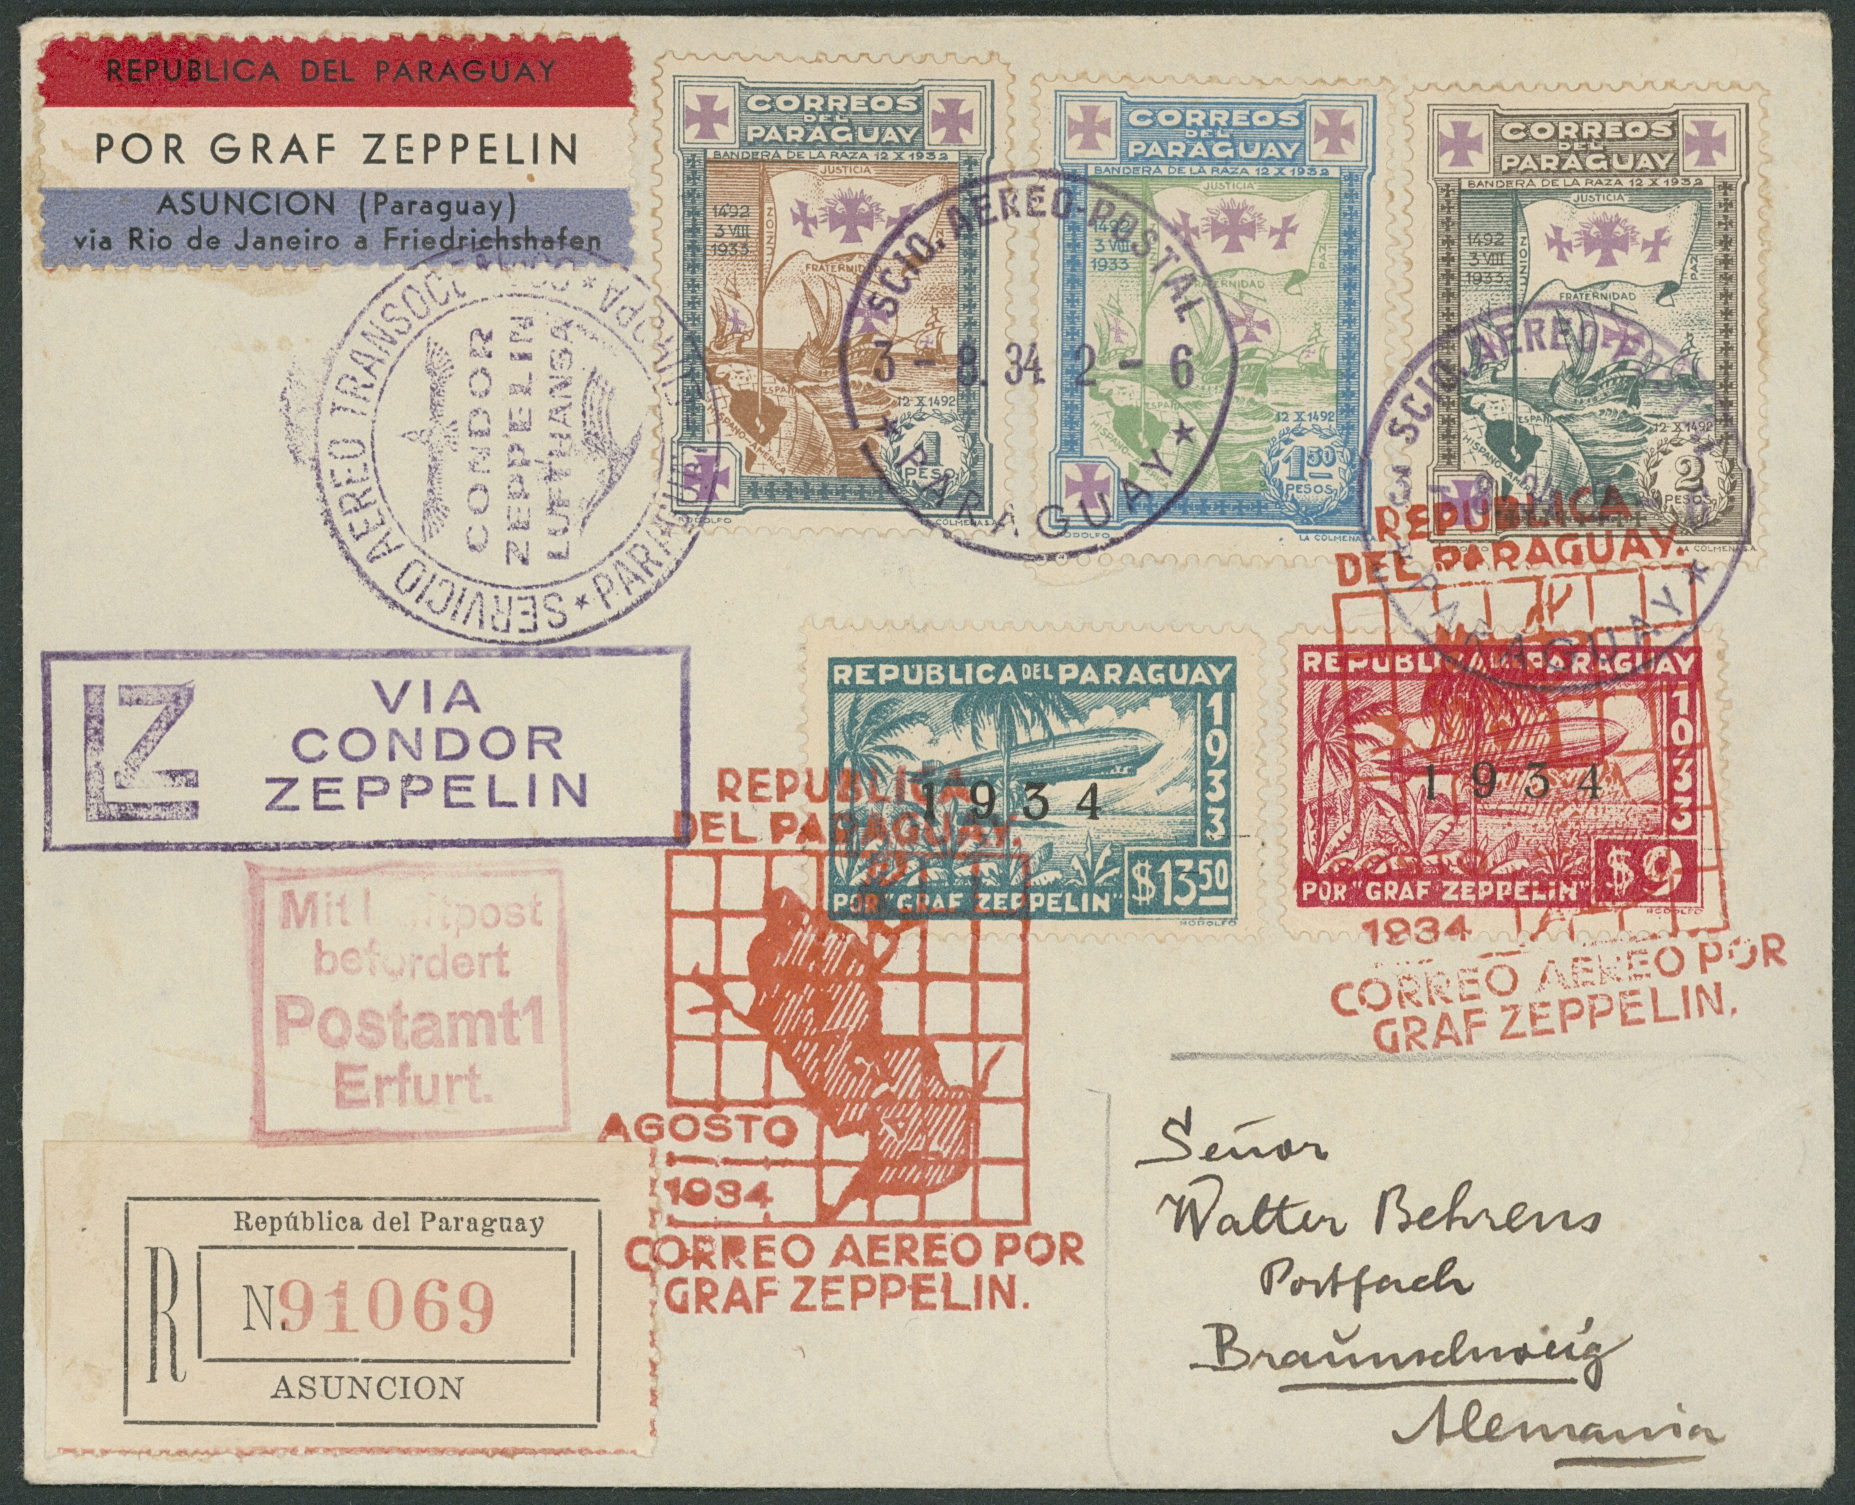 REPUBLICA DEL PARAGUAY
POR GRAF ZEPPELIN
ASUNCION (Paraguay)
via Rio de Janeiro a Friedrichshafen
CORREOS
DEL
PARAGUAY
BANDERA DE LA RAZA 12 X 1932
JUSTICIA
1492
3 VIII
1933
UNION
FRATERNIDAD
ESPAÑA
HISPANO-AMERICA
12 X 1492
1
PESO
RODOLFO
LA COLMENA S.A.
CORREOS
DEL
PARAGUAY
BANDERA DE LA RAZA 12 X 1932
JUSTICIA
1492
3 VIII
1933
PAZ
FRATERNIDAD
ESPAÑA
HISPANO
12 X 1492
1.50
PESOS
RODOLFO
LA COLMENA S.A.
CORREOS
DEL
PARAGUAY
BANDERA DE LA RAZA 12 X 1932
JUSTICIA
1492
3 VIII
1933
UNION
PAZ
FRATERNIDAD
ESPAÑA
HISPANO
12 X 1492
2
PESOS
LA COLMENA S.A.
SCIO. AEREO-POSTAL
3 - 8. 34. 2 - 6
* PARAGUAY *
SCIO. AEREO-POSTAL
PARAGUAY *
SERVICIO AEREO TRANSOCEANICO * PARAGUAY EUROPA *
CONDOR
ZEPPELIN
LUFTHANSA
LZ
VIA
CONDOR
ZEPPELIN
REPUBLICA DEL PARAGUAY
1933
1934
$13.50
POR "GRAF ZEPPELIN"
RODOLFO
REPUBLICA DEL PARAGUAY
1933
1934
$9
POR "GRAF ZEPPELIN"
RODOLFO
REPUBLICA
DEL PARAGUAY.
1934
CORREO AEREO POR
GRAF ZEPPELIN.
REPUBLICA
DEL PARAGUAY.
AGOSTO
1934
CORREO AEREO POR
GRAF ZEPPELIN.
Mit Luftpost
befördert
Postamt1
Erfurt.
República del Paraguay
R
N.91069
ASUNCION
Señor
Walter Behrens
Postfach
Braunschweig
Alemania